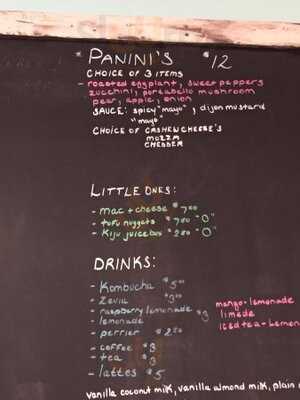 * PANINI'S $12
CHOICE OF 3 ITEMS
- roasted eggplant, sweet peppers
zucchini, portabello mushroom
pear, apple, onion
SAUCE: spicy "mayo", dijon mustard
"mayo"
CHOICE OF CASHEW CHEESE'S
MOZZA
CHEDDER
LITTLE ONES:
- mac + cheese $7.00
- tofu nuggets $7.00 "O"
- Kiju juicebox $2.00 "O"
DRINKS:
- Kombucha $5.00
- Zevia
- raspberry lemonade $3
- lemonade
- perrier
- coffee $3
- tea $3
- lattes $5
mango-lemonade
limeade
iced tea-lemon
vanilla coconut milk, vanilla almond milk, plain